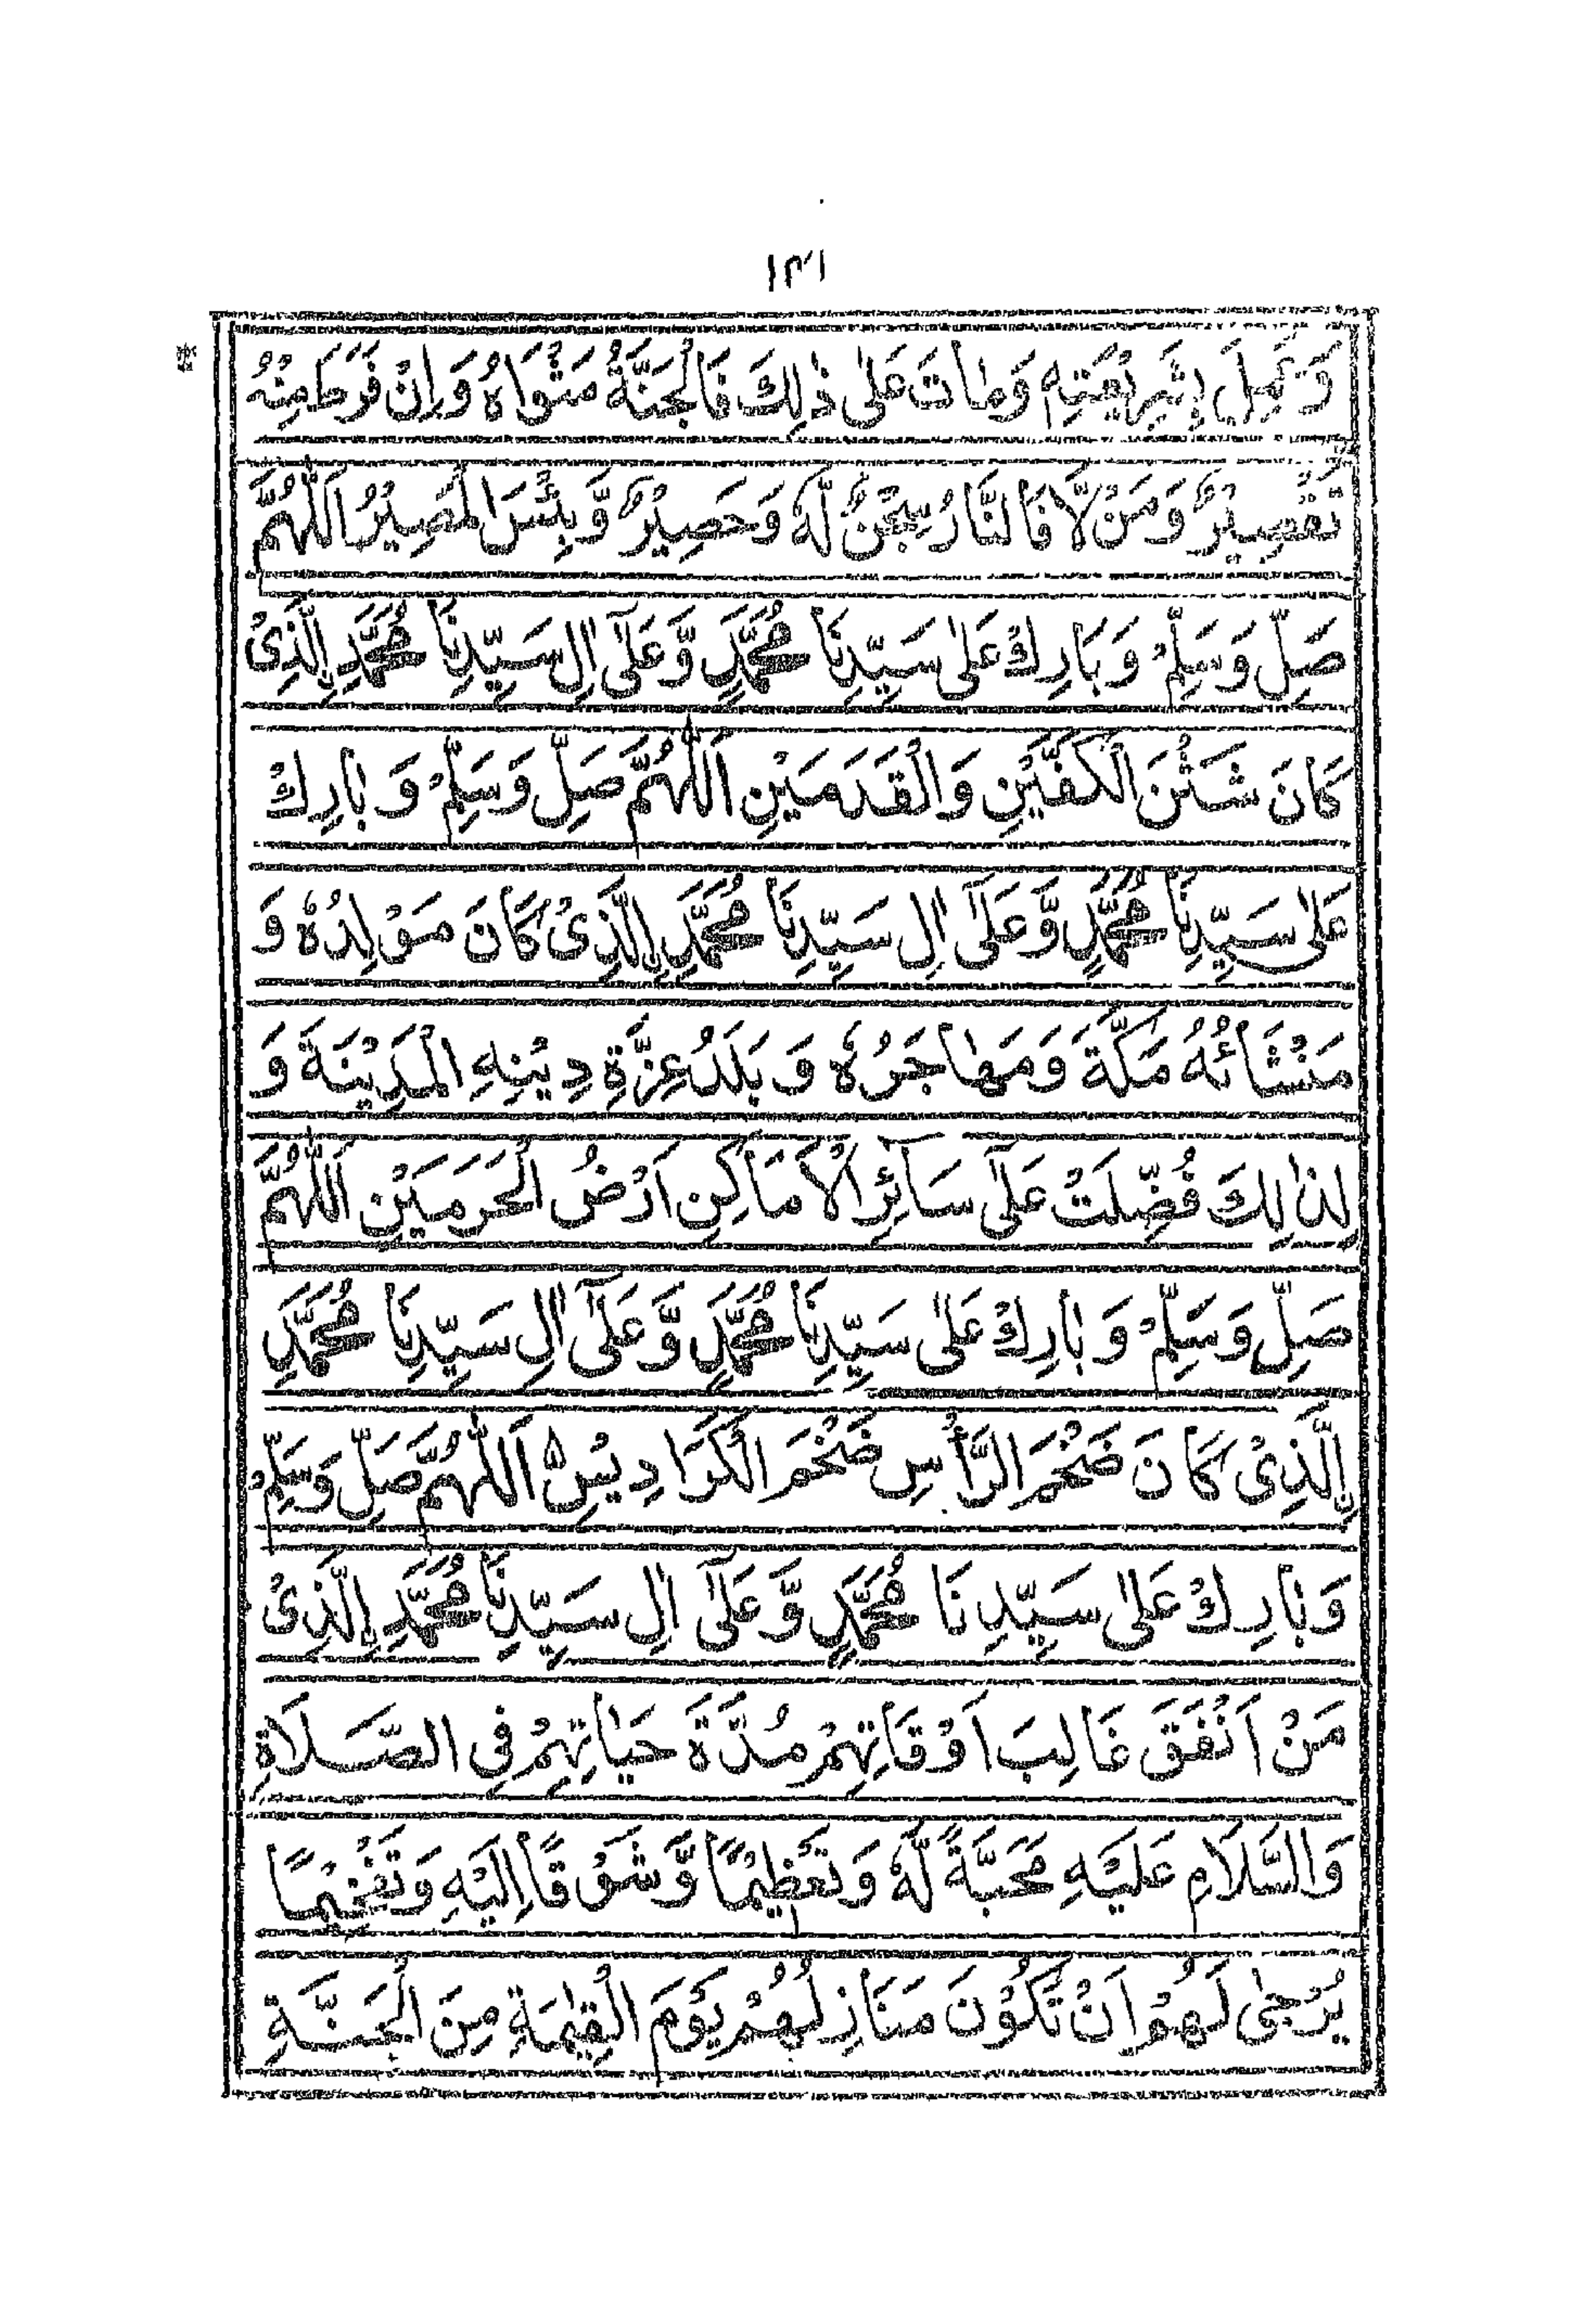 ١٣١
وَعَمِلَ بِشَرِيْعَتِهٖ وَمَاتَ عَلٰى ذٰلِكَ فَالْجَنَّةُ مَثْوَاهُ وَاِنْ فَرَطَ مِنْهُ
تَقْصِيْرٌ وَمَنْ لَّا فَالنَّارُ سِجْنٌ لَّهٗ وَحَصِيْرٌ وَّبِئْسَ الْمَصِيْرُ اَللّٰهُمَّ
صَلِّ وَسَلِّمْ وَبَارِكْ عَلٰى سَيِّدِنَا مُحَمَّدٍ وَّعَلٰٓى اٰلِ سَيِّدِنَا مُحَمَّدِ اِلَّذِىْ
كَانَ شَثْنَ الْكَفَّيْنِ وَالْقَدَمَيْنِ اَللّٰهُمَّ صَلِّ وَسَلِّمْ وَ بَارِكْ
عَلٰى سَيِّدِنَا مُحَمَّدٍ وَّعَلٰٓى اٰلِ سَيِّدِنَا مُحَمَّدِ اِلَّذِىْ كَانَ مَوْلِدُهٗ وَ
مَنْشَائُهُ مَكَّةَ وَمَهَاجَرُهٗ وَ بَلَدُ عِزَّةِ دِيْنِهِ الْمَدِيْنَةَ وَ
لِذٰلِكَ فُضِّلَتْ عَلٰى سَآئِرِ الْاَمَاكِنِ اَرْضُ الْحَرَمَيْنِ اَللّٰهُمَّ
صَلِّ وَسَلِّمْ وَ بَارِكْ عَلٰى سَيِّدِنَا مُحَمَّدٍ وَّعَلٰٓى اٰلِ سَيِّدِنَا مُحَمَّدِ
اِلَّذِىْ كَانَ ضَخْمَ الرَّأْسِ ضَخْمَ الْكَرَادِيْسِ ۵ اَللّٰهُمَّ صَلِّ وَسَلِّمْ
وَبَارِكْ عَلٰى سَيِّدِنَا مُحَمَّدٍ وَّعَلٰٓى اٰلِ سَيِّدِنَا مُحَمَّدِ اِلَّذِىْ
مَنْ اَنْفَقَ غَالِبَ اَوْقَاتِهِمْ مُدَّةَ حَيَاتِهِمْ فِى الصَّلَاةِ
وَالسَّلَامِ عَلَيْهِ مَحَبَّةً لَّهٗ وَتَعْظِيْمًا وَّشَوْقًا اِلَيْهِ وَتَفْخِيْمًا
يُرْجٰى لَهُمْ اَنْ تَكُوْنَ مَنَازِلُهُمْ يَوْمَ الْقِيٰمَةِ مِنَ الْجَنَّةِ